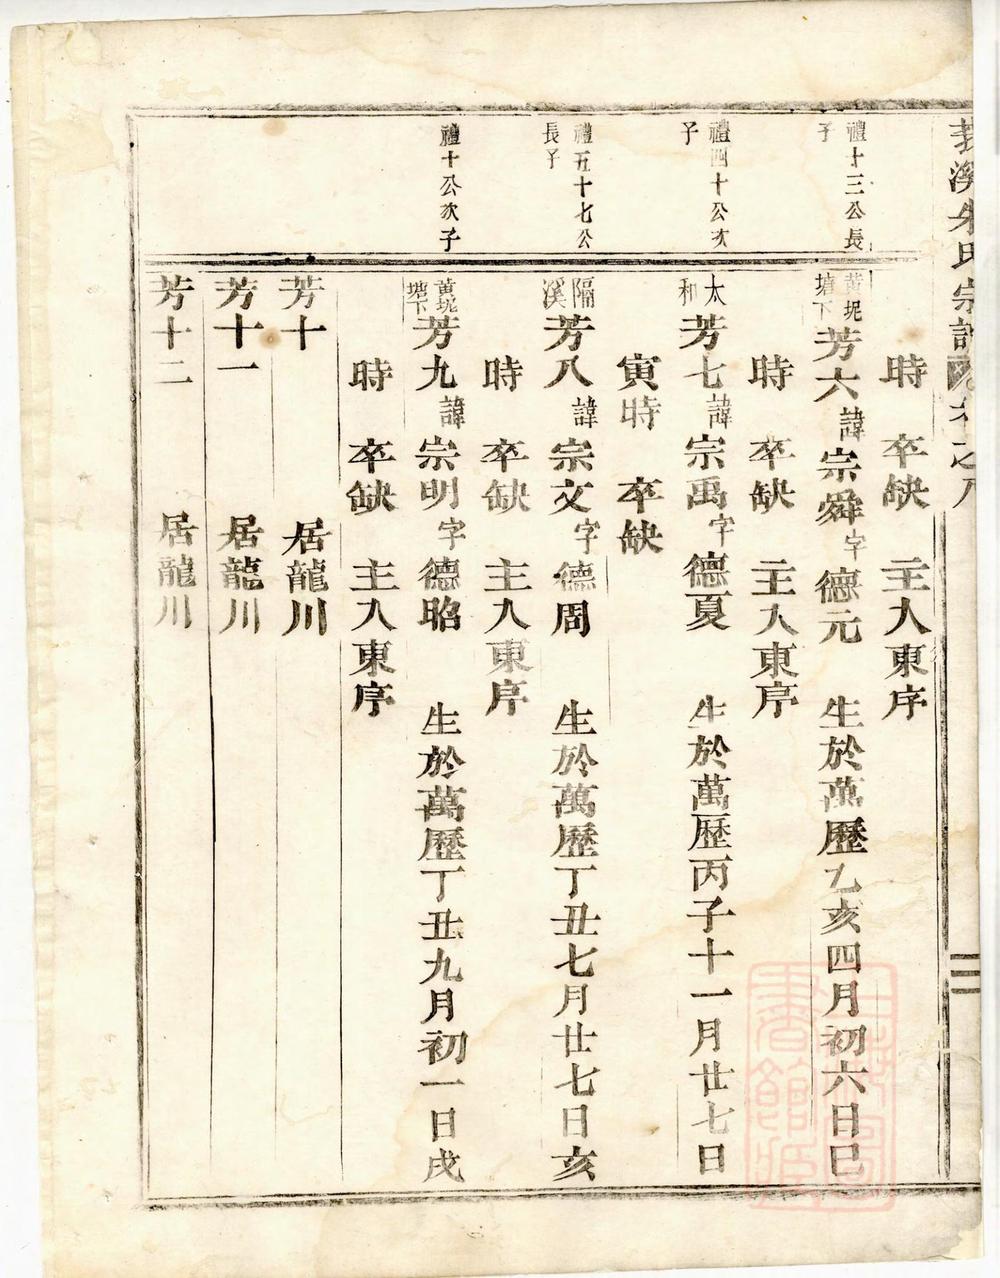 溪朱氏宗譜 卷之八
時 卒缺 主入東序
禮十三公長子
黄坭塘下 芳六 諱宗舜 字德元 生於萬歷乙亥四月初六日巳
時 卒缺 主入東序
禮四十公次子
太和 芳七 諱宗禹 字德夏 生於萬歷丙子十一月廿七日
寅時 卒缺
禮五十七公長子
隔溪 芳八 諱宗文 字德周 生於萬歷丁丑七月廿七日亥
時 卒缺 主入東序
禮十公次子
黄坭塘下 芳九 諱宗明 字德昭 生於萬歷丁丑九月初一日戌
時 卒缺 主入東序
芳十 居龍川
芳十一 居龍川
芳十二 居龍川